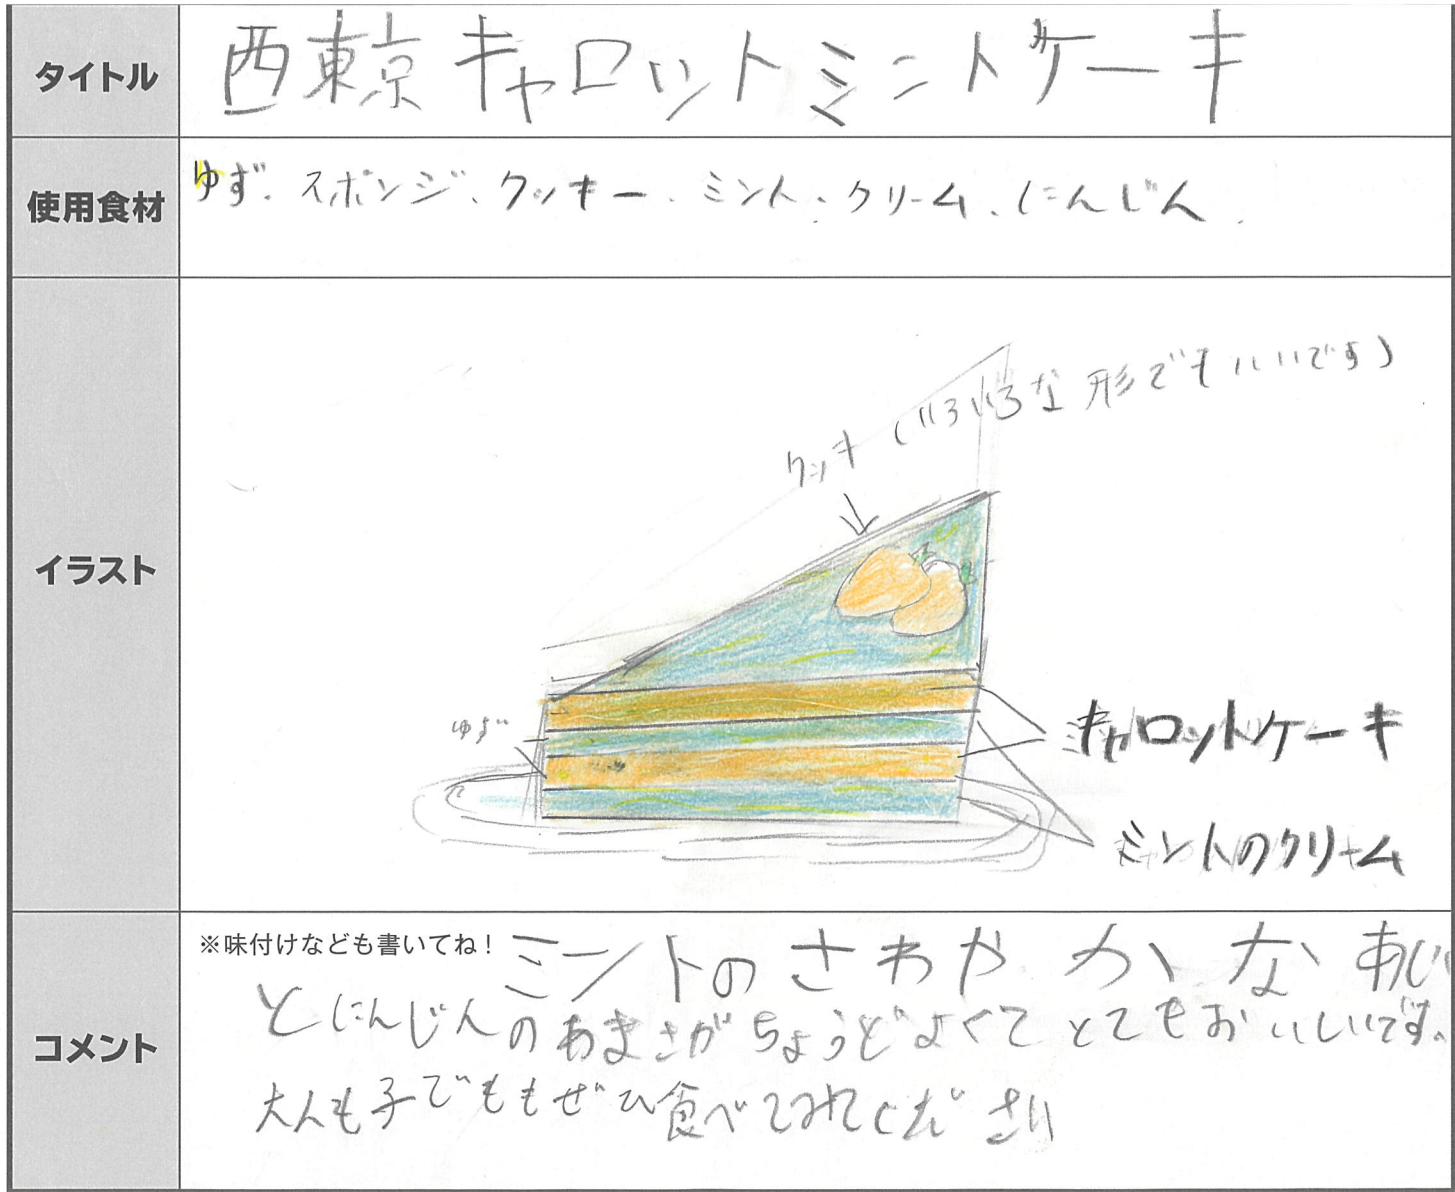 タイトル
西東京キャロットミントケーキ
使用食材
ゆず、スポンジ、クッキー、ミント、クリーム、にんじん、
イラスト
クッキ(いろいろな形でもいいです)
ゆず
キャロットケーキ
ミントのクリーム
コメント
※味付けなども書いてね!
ミントのさわやかなあじ
とにんじんのあまさがちょうどよくてとてもおいしいです。
大人も子でももぜひ食べてみてください